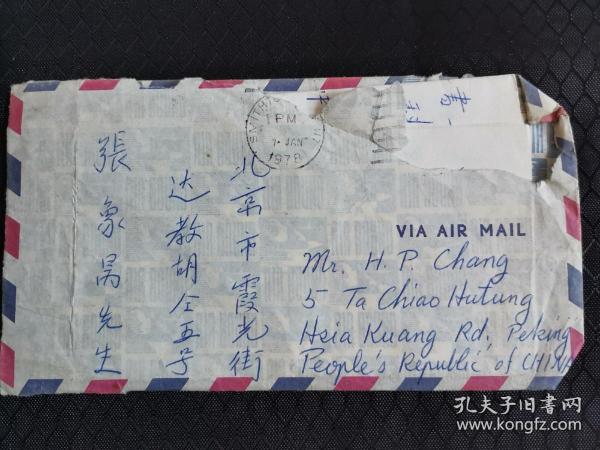 SMITHT
1 PM
JAN
1978
NY
北京市霞光街
达教胡仝五号
張象昺先生
VIA AIR MAIL
Mr. H. P. Chang
5 Ta Chiao Hutung
Hsia Kuang Rd, Peking
People's Republic of CHINA
孔夫子旧書网
www.kongfz.com